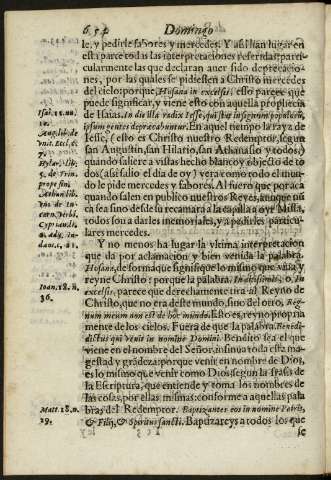 654 Domingo
le, y pedirle fabores y mercedes. Y assi han lugar en
esta parte todas las interpretaciones referidas: parti-
cularmente las que declaran auer sido deprecacio-
nes, por las quales se pidiessen a Christo mercedes
del cielo: porque, Hosana in excelsis: esso parece que
puede significar, y viene esto con aquella prophecia
de Isaias. In die illa radix Iesse, qui stat in signum populorum,
ipsum gentes deprecabuntur. En aquel tiempo la rayz de
Iesse, (esto es Christo nuestro Redemptor, segun
san Augustin, san Hilario, san Athanasio y todos)
quando saliere a vistas hecho blanco y objecto de to
dos (assi salio el dia de oy) vera como todo el mun-
do le pide mercedes y fabores. Al fuero que por aca
quando salen en publico nuestros Reyes, aunque nũ
ca sea sino desde su recamara a la capilla a oyr Missa,
todos son a darles memoriales, y a pedirles particu-
lares mercedes.
Y no menos ha lugar la vltima interpretacion
que da por aclamacion y bien venida la palabra.
Hosana, de forma que signifique lo mismo que viua y
reyne Christo: porque la palabra. In altissimis, o, In
excelsis, parece que derechamente tira al Reyno de
Christo, que no era deste mundo, sino del otro, Reg-
num meum non est de hoc mundo. Esto es, reyno propria
mente de los cielos. Fuera de que la palabra. Benedi-
dictus qui venit in nomine Domini. Bendito sea el que
viene en el nombre del Señor, insinua toda esta ma-
gestad y grãdeza: porque venir en nombre de Dios,
es lo mismo que venir como Dios segun la frasis de
la Escriptura, que entiende y toma los nombres de
las cosas, por ellas mismas: conforme a aquellas pala
bras del Redemptor. Baptizantes eos in nomine Patris,
& Filij, & Spiritus sancti. Baptizareys a todos los que
se
Isai. 11. nu.
10.
August. lib. de
vnit. Eccl. c.
7.
Hylar. Lib.
5. de Trin.
prope finẽ
Athan. lib.
de In-
carn. Verbi.
Cyprian. li.
2. adu. Iu-
dæos, c. 21.
Ioan. 18. n.
36.
Matt. 28. n.
19.